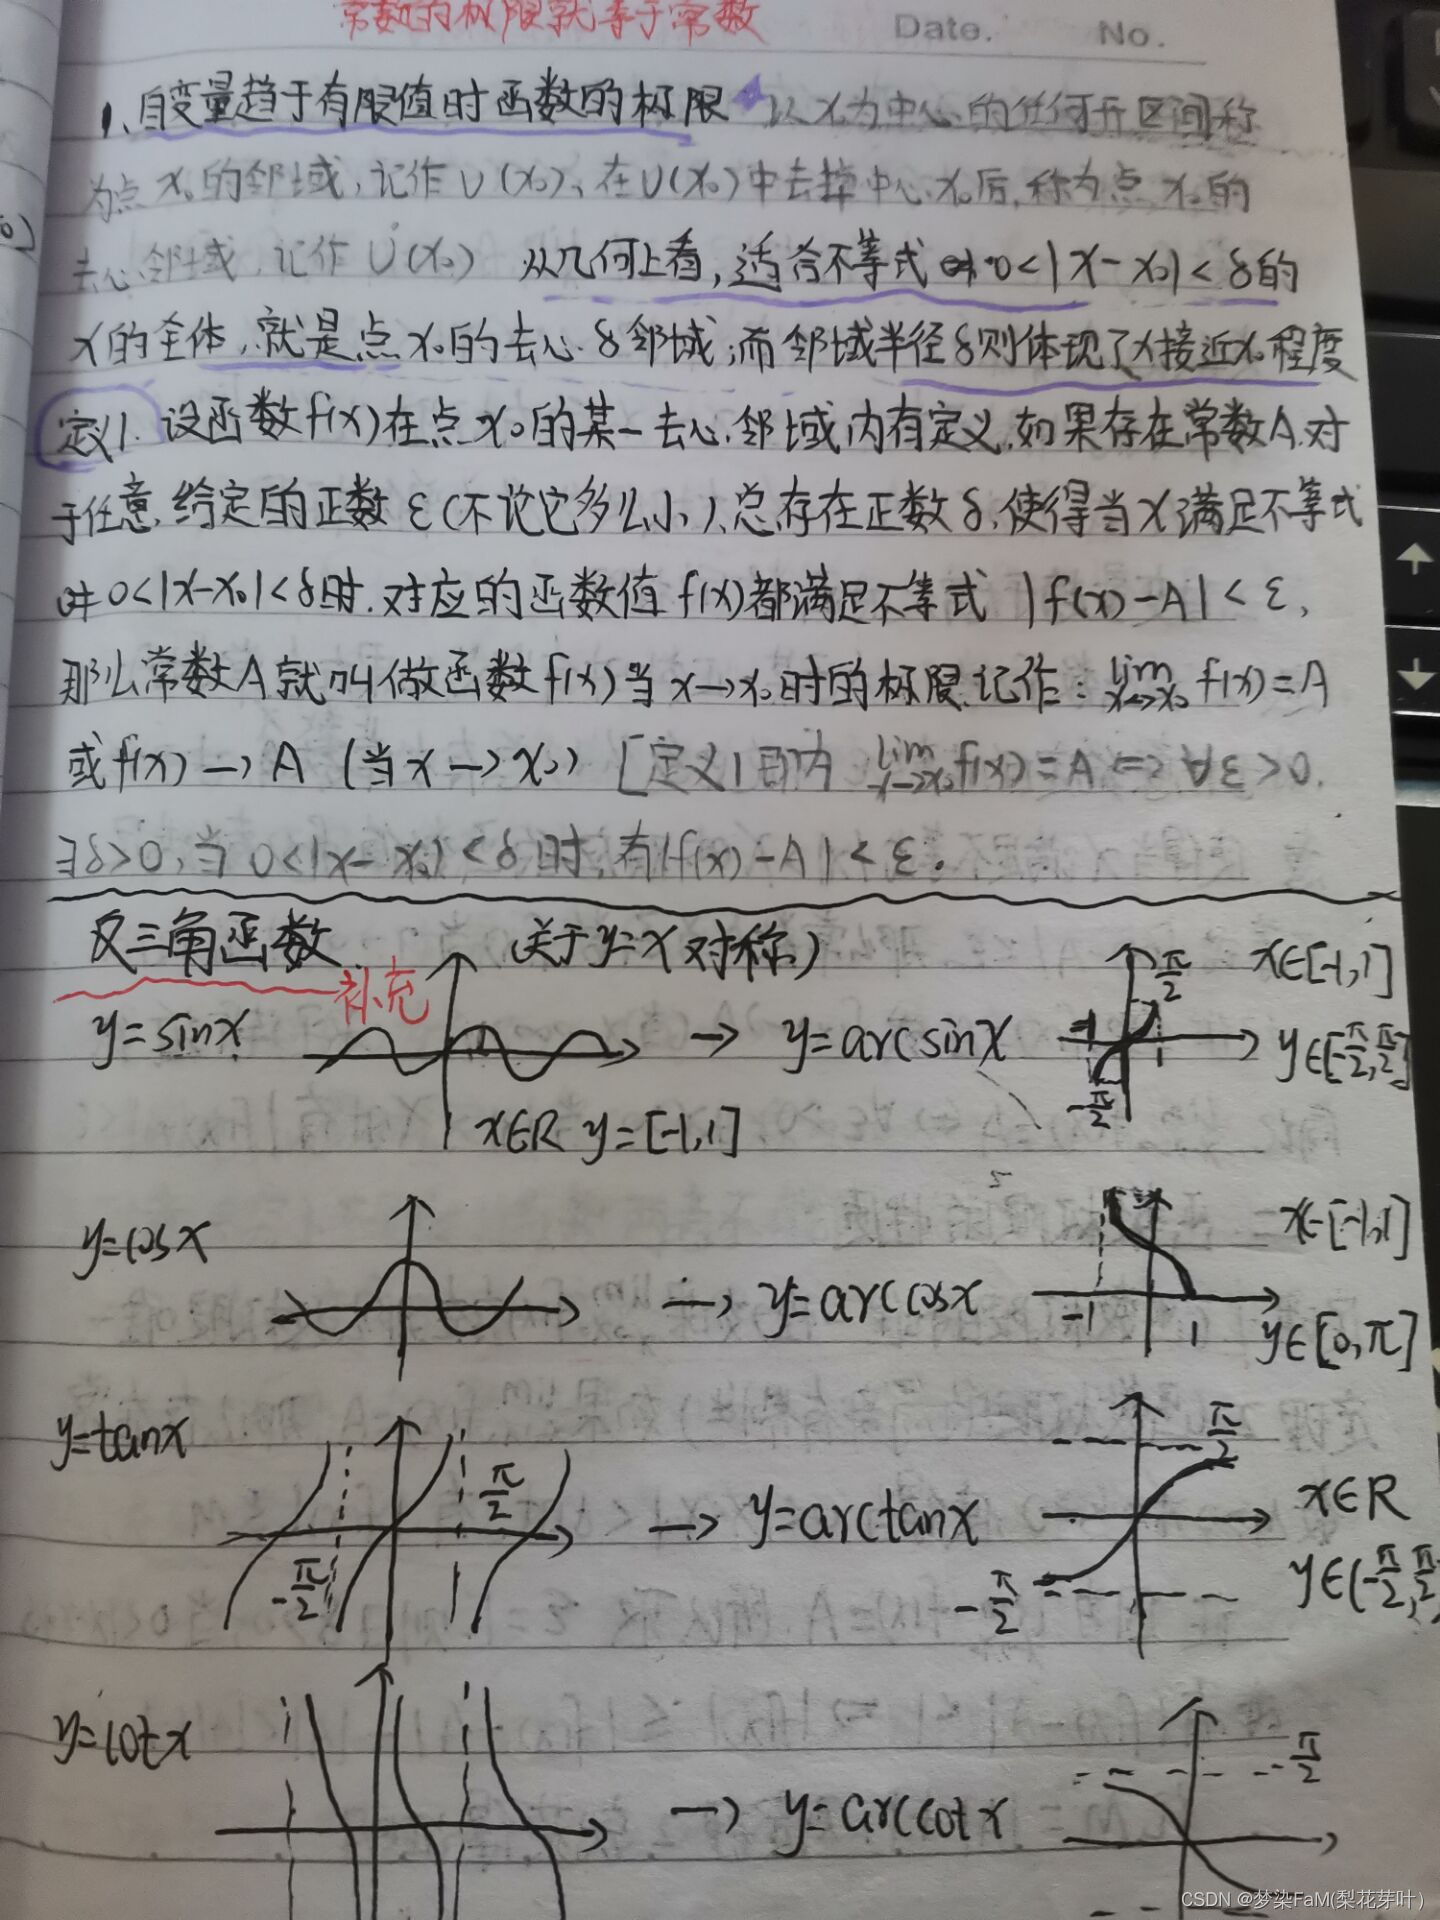 常数的极限就等于常数 Date. No.
1、自变量趋于有限值时函数的极限 以x₀为中心的任何开区间称
为点x₀的邻域,记作U(x₀),在U(x₀)中去掉中心x₀后,称为点x₀的
去心邻域,记作Ů(x₀) 从几何上看,适合不等式 0<|x-x₀|<δ的
x的全体,就是点x₀的去心δ邻域,而邻域半径δ则体现了x接近x₀程度
定义1. 设函数f(x)在点x₀的某一去心邻域内有定义,如果存在常数A,对
于任意给定的正数ε(不论它多么小),总存在正数δ,使得当x满足不等式
0<|x-x₀|<δ时,对应的函数值f(x)都满足不等式 |f(x)-A|<ε,
那么常数A就叫做函数f(x)当x→x₀时的极限,记作: lim x→x₀ f(x)=A
或f(x)→A (当x→x₀) [定义1可为 lim x→x₀ f(x)=A ⇔ ∀ε>0.
∃δ>0,当0<|x-x₀|<δ时,有|f(x)-A|<ε.
反三角函数 补充 (关于y=x对称)
y=sinx → y=arcsinx π/2 -1 1 -π/2 x∈[-1,1]
y∈[-π/2,π/2]
x∈R y=[-1,1]
y=cosx → y=arccosx -1 1 x∈[-1,1]
y∈[0,π]
y=tanx -π/2 π/2 → y=arctanx π/2 -π/2 x∈R
y∈(-π/2,π/2
y=cotx → y=arccotx π/2
CSDN @梦染FaM(梨花芽叶)